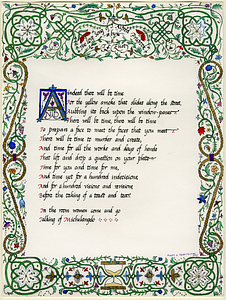 And indeed there will be time
For the yellow smoke that slides along the street,
Rubbing its back upon the window-panes;
There will be time, there will be time
To prepare a face to meet the faces that you meet
There will be time to murder and create,
And time for all the works and days of hands
That lift and drop a question on your plate
Time for you and time for me,
And time yet for a hundred indecisions,
And for a hundred visions and revisions,
Before the taking of a toast and tea.
In the room women come and go
Talking of Michelangelo